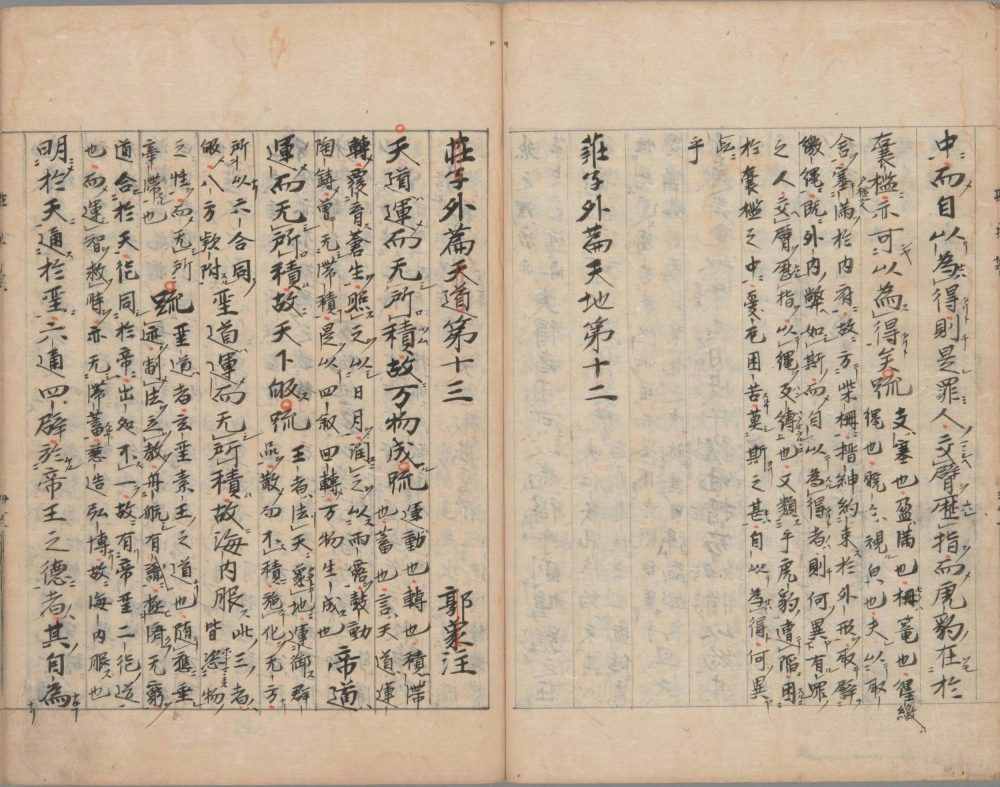 中而自以為得則是罪人交臂歷指而虎豹在於
囊檻亦可以為得矣疏
支塞也盈滿也柵蘢也纆繳
繩也睆〻視皃也夫以取
舍塞滿於內府故方柴柵搢紳約束於外形取辟
繳繩既外內弊如斯而自以為得者則何異有罪
之人交臂歷指以繩反縛也又類乎虎豹遭陷困
於囊檻之中憂危困苦莫斯之甚自以為得何異
此
乎
莊子外篇天地第十二
莊子外篇天道第十三 郭象注
天道運而无所積故万物成疏
運動也轉也積滯
也畜也言天道運
轉覆育蒼生照之以日月潤之以雨露鼓動
陶鑄曾无滯積是以四敘四轉万物生成也
帝道
運而无所積故天下皈疏
王者法天象地運御群
品散而不積施化无方
所以六合同
皈八方款附
聖道運而无所積故海內服
此三者
皆恣物
之性而无所
牽滯也
疏
聖道者玄聖素王之道也隨應垂
迹制法立教舟航有識拯濟无窮
道合於天德同於帝出處不一故有帝聖二道
也而運智救時亦无滯蓄慈造弘博故海內服也
明於天通於聖六通四辟於帝王之德者其自為